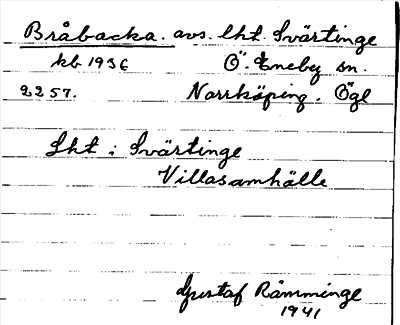 Bråbacka. avs. lht. Svärtinge
kb 1936 Ö. Eneby sn.
2257. Norrköping. Ögl
Lht i Svärtinge
Villasamhälle
Gustaf Råmminge
1941